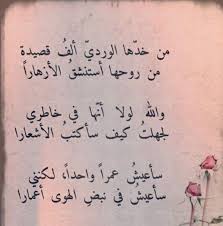 من خدّها الورديّ ألفُ قصيدة
من روحها أستنشقُ الأزهاراً
واللهُ لولا أنّها في خاطري
لجهلت كيف سأكتبُ الأشعارا
سأعيشُ عمراً واحداً، لكنني
سأعيشُ في نبضِ الهوى أعمارا